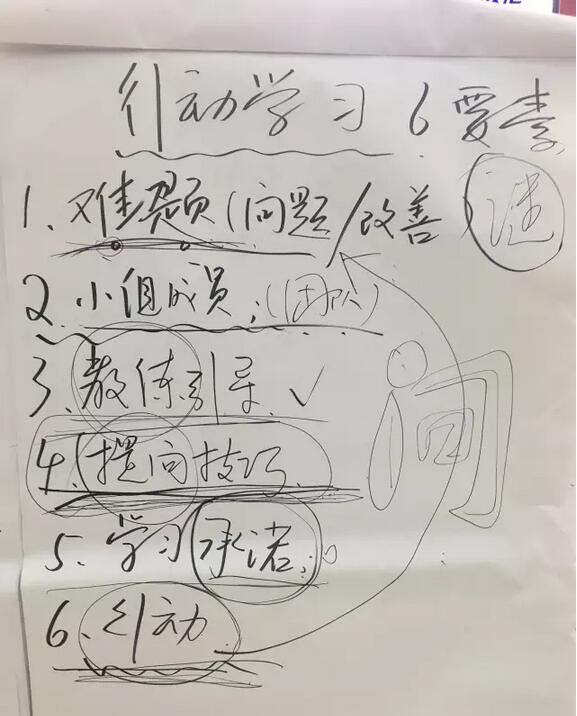 行动学习6要素
1、难题(问题/改善) 谜
2、小组成员:(团队)
3、教练引导 ✓
问
4、提问技巧
5、学习承诺
6、行动